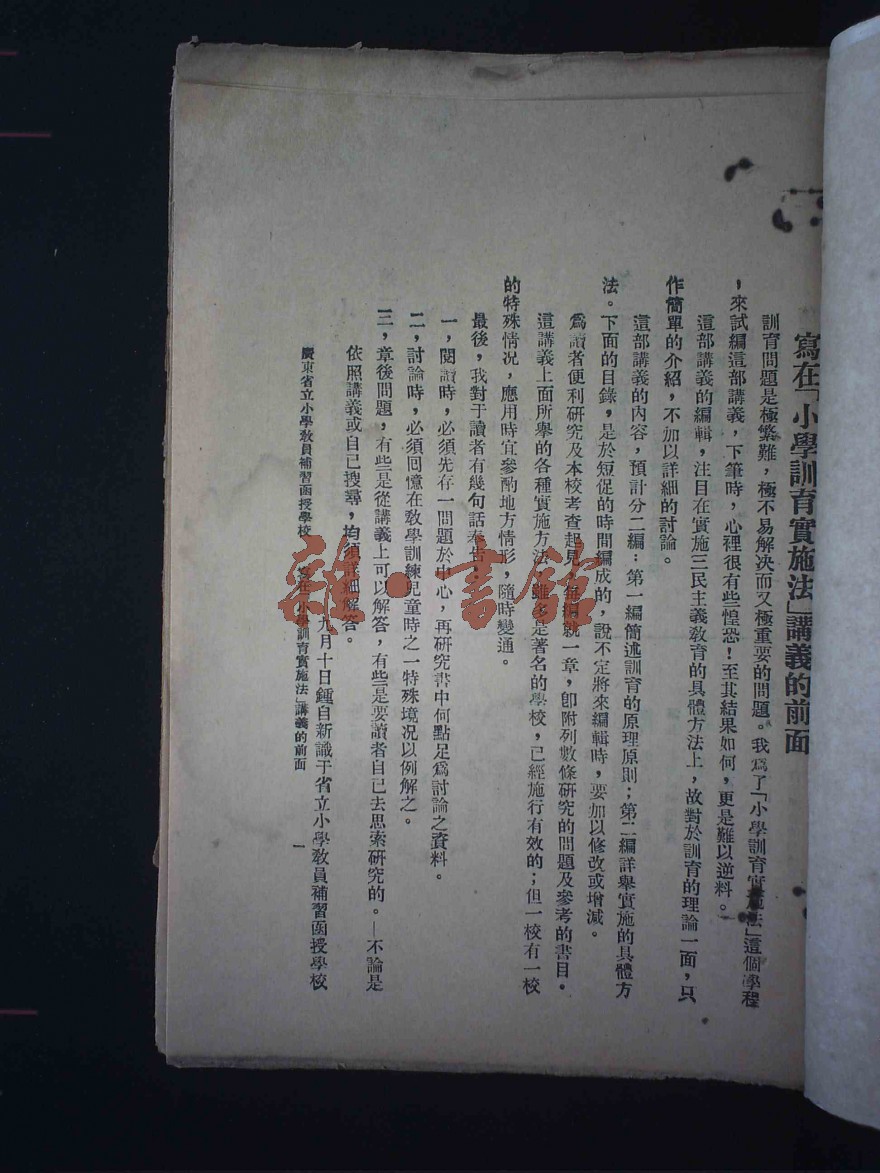 寫在「小學訓育實施法」講義的前面
訓育問題是極繁難，極不易解决而又極重要的問題。我爲了「小學訓育實施法」這個學程
，來試編這部講義，下筆時，心裡很有些惶恐！至其結果如何，更是難以逆料。
這部講義的編輯，注目在實施三民主義敎育的具體方法上，故對於訓育的理論一面，只
作簡單的介紹，不加以詳細的討論。
這部講義的內容，預計分二編：第一編簡述訓育的原理原則；第二編詳舉實施的具體方
法。下面的目錄，是於短促的時間編成的，說不定將來編輯時，要加以修改或增減。
爲讀者便利研究及本校考查起見，每編就一章，卽附列數條研究的問題及參考的書目。
這講義上面所舉的各種實施方法，雖多是著名的學校，已經施行有效的；但一校有一校
的特殊情况，應用時宜參酌地方情形，隨時變通。
最後，我對于讀者有幾句話奉告：
一，閱讀時，必須先存一問題於中心，再研究書中何點足爲討論之資料。
二，討論時，必須回憶在敎學訓練兒童時之一特殊境况以例解之。
三，章後問題，有些是從講義上可以解答，有些是要讀者自己去思索研究的。—不論是
依照講義或自己搜尋，均須詳細解答。
九月十日鍾自新識于省立小學敎員補習函授學校
廣東省立小學敎員補習函授學校　寫在「小學訓育實施法」講義的前面　一
雜·書館